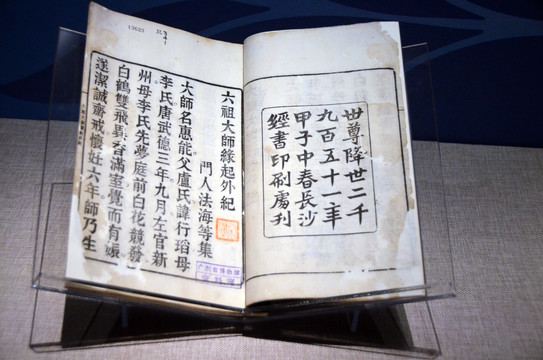 世尊降世二千
九百五十一年
甲子中春長沙
經書印刷處刊
13623
六祖大師緣起外紀
門人法海等集
大師名惠能父盧氏諱行瑫母
李氏唐武德三年九月左官新
州母李氏先夢庭前白花競發
白鶴雙飛異香滿室覺而有娠
遂潔誠齋戒懷妊六年師乃生